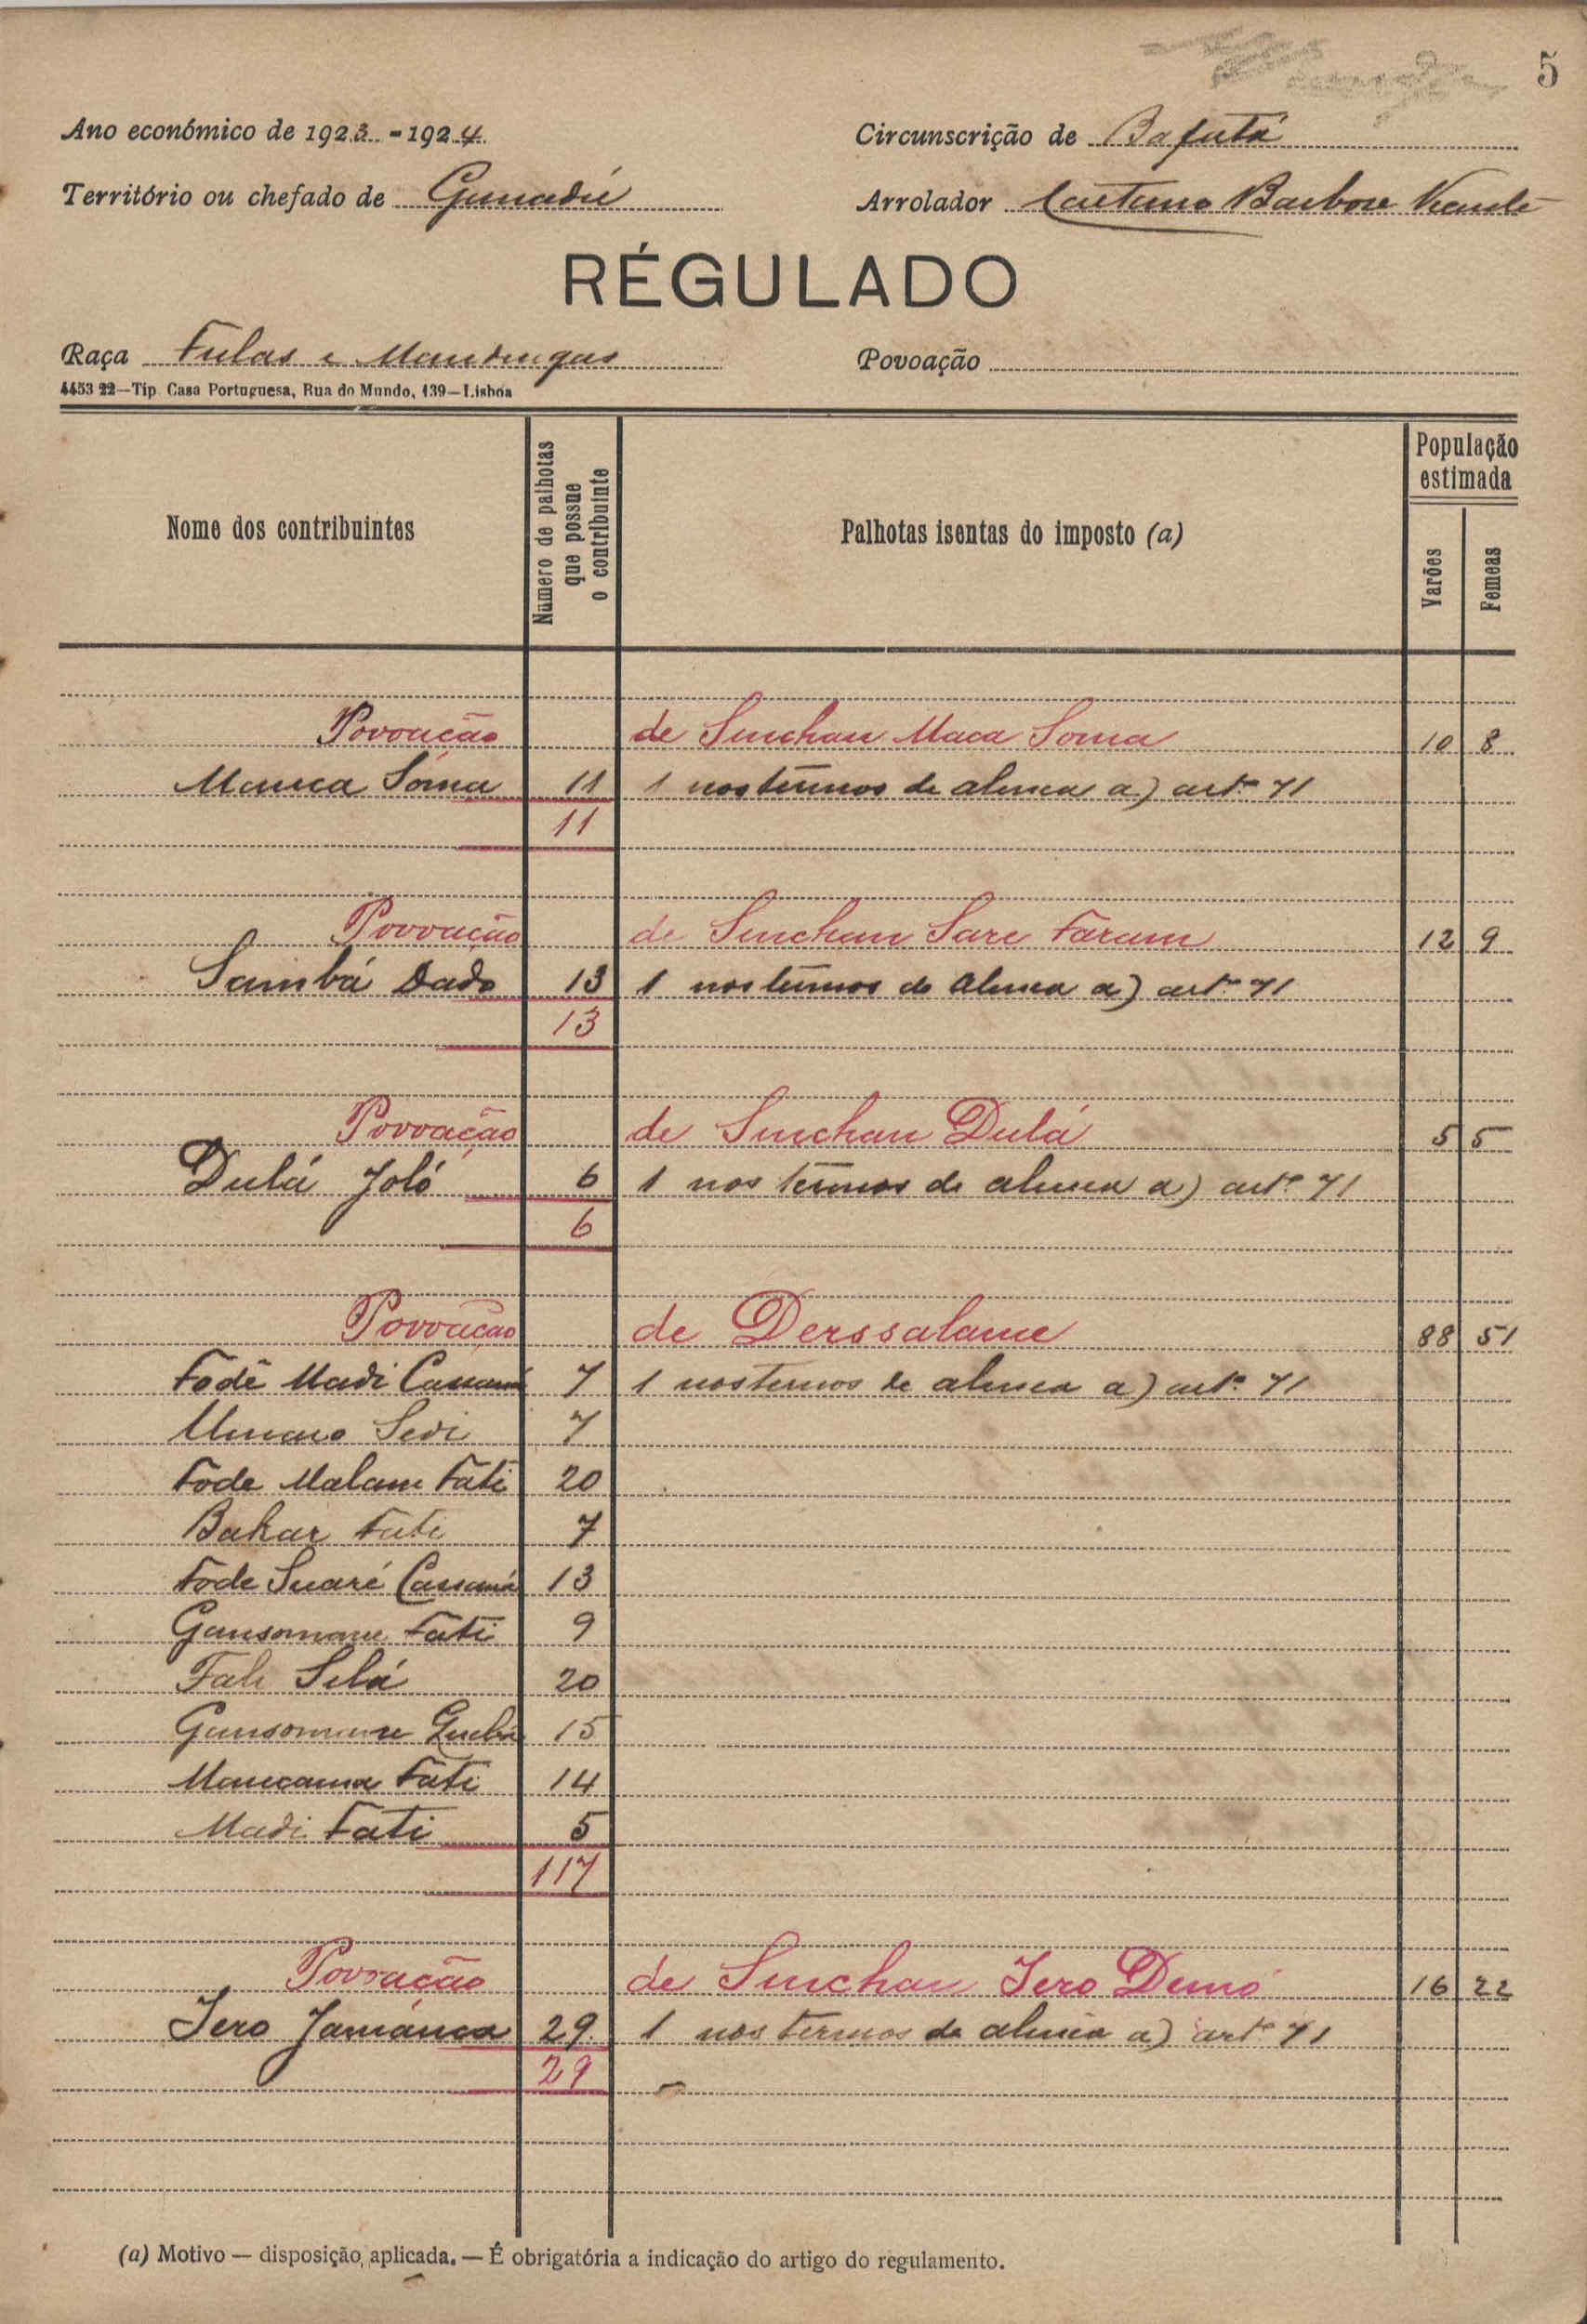 5
Ano económico de 1923 - 1924
Circunscrição de Bafatá
Território ou chefado de Ganadú
Arrolador Caetano Barbosa Vicente
RÉGULADO
Raça Fulas e Mandingas
Povoação
4453 22—Tip. Casa Portuguesa, Rua do Mundo, 139—Lisboa
Nome dos contribuintes
Número de palhotas que possue o contribuinte
Palhotas isentas do imposto (a)
População estimada
Varões
Femeas
Povoação de Sinchan Maca Soma 10 8
Manca Soma 11 1 nos têrmos da alinea a) artº 71
11
Povoação de Sinchan Sare Faram 12 9
Sambá Dado 13 1 nos têrmos da alinea a) artº 71
13
Povoação de Sinchan Dulá 5 5
Dulá Joló 6 1 nos têrmos da alinea a) artº 71
6
Povoação de Derssalame 88 51
Fodê Madi Cassamá 7 1 nos termos da alinea a) artº 71
Umaro Sedi 7
Fode Malam Fati 20
Bakar Fati 7
Fode Suaré Cassamá 13
Gansomane Fati 9
Fali Silá 20
Gansomane 15
Manecama Fati 14
Madi Fati 5
117
Povoação de Sinchan Iero Demó 16 22
Iero Jamanca 29 1 nos termos da alinea a) artº 71
29
(a) Motivo — disposição aplicada. — É obrigatória a indicação do artigo do regulamento.